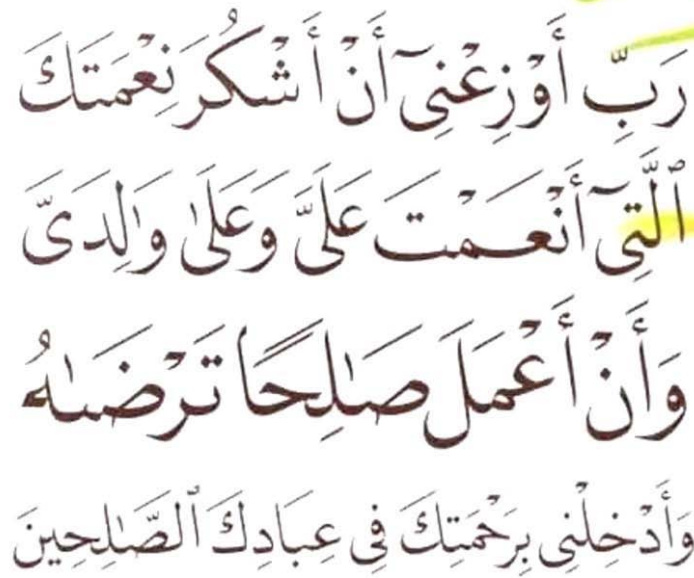 رَبِّ أَوْزِعْنِىٓ أَنْ أَشْكُرَ نِعْمَتَكَ
ٱلَّتِىٓ أَنْعَمْتَ عَلَىَّ وَعَلَىٰ وَٰلِدَىَّ
وَأَنْ أَعْمَلَ صَٰلِحًا تَرْضَىٰهُ
وَأَدْخِلْنِى بِرَحْمَتِكَ فِى عِبَادِكَ ٱلصَّٰلِحِينَ